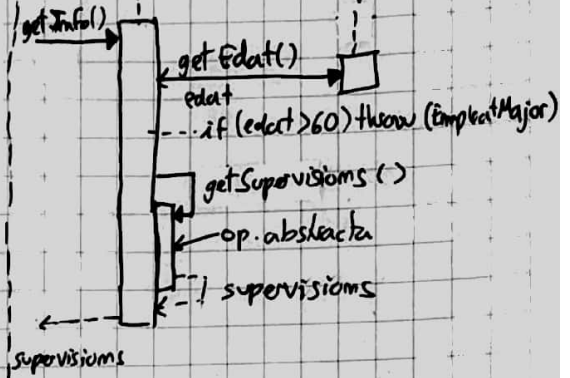 getInfo()
getEdat()
edat
if (edat>60) throw (EmpleatMajor)
getSupervisions()
op. abstracta
supervisions
supervisions